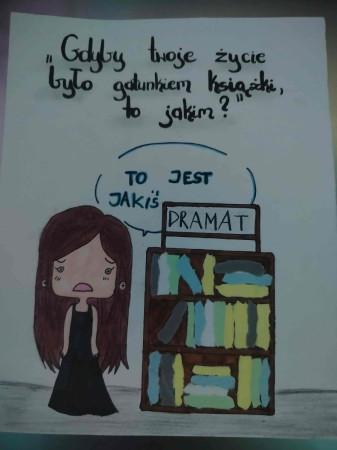 „Gdyby twoje życie
było gatunkiem książki,
to jakim?"
TO JEST
JAKIŚ
DRAMAT